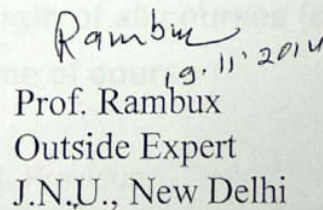 Rambux
19.11.2014
Prof. Rambux
Outside Expert
J.N.U., New Delhi